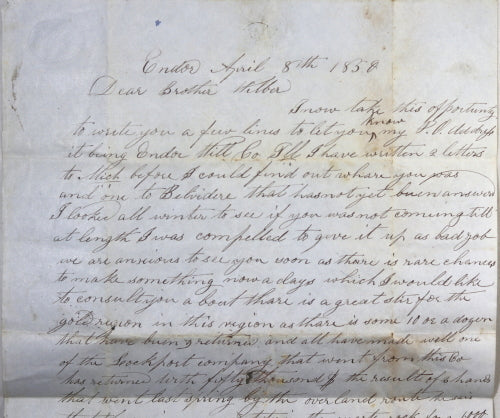 Endor April 8th 1850
Dear Brother Wilber
I now take this opportunity
to write you a few lines to let you know my P.O. Address
it being Endor Will Co. Ill I have written 2 letters
to Mich before I could find out whare you was
and one to Belvidere that has not yet buen answerd
I looked all winter to see if you was not coming till
at length I was compelled to give it up as bad job
we are anxious to see you soon as thare is rare chances
to make something now a days which I would like
to consult you a bout thare is a great stir for the
gold region in this region as thare is some 10 or a dozen
that have buen & returned and all have made well one
of the Lockport company that went from this Co
has returned with fifty thousond $ the result of a chance
that went last spring by the overland route